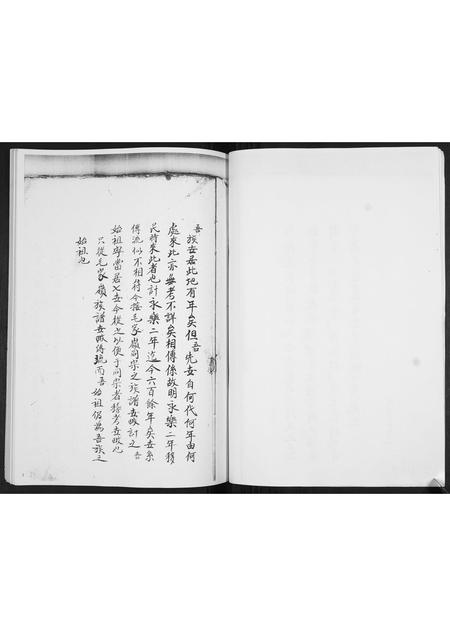 吾族世居此地有年矣但吾先世自何代何年由何
處來此亦無考不詳矣相傳係故明永樂二年移
民時來此者也計永樂二年迄今六百餘年矣世系
傳流似不相符今按毛家嶺同宗之族譜世派計之吾
始祖寧當居七世今從之以便于同宗者稽考世派也
只從毛家嶺族譜世派傳疏而吾始祖仍為吾族之
始祖也